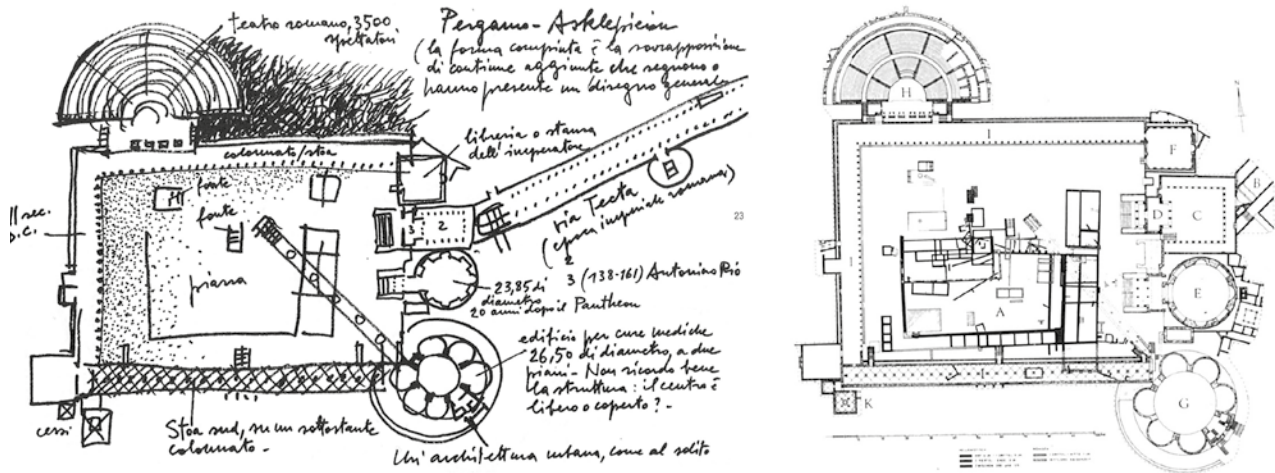 teatro romano, 3500
spettatori
Pergamo - Asklepieion
(la forma compiuta è la sovrapposizione
di continue aggiunte che segnono o
hanno presente un disegno generale
libreria o stanza
dell'imperatore
colonnato/stoa
fonte
fonte
II sec.
D.C.
piazza
3
2
via Tecta
(epoca imperiale romana)
2
3 (138-161) Antonino Pio
23,85 di
diametro
20 anni dopo il Pantheon
edificio per cure mediche
26,50 di diametro, a due
piani - Non ricordo bene
la struttura: il centro è
libero o coperto? -
cessi
Stoa sud, su un sottostante
colonnato -
Un'architettura urbana, come al solito
23
H
I
F
B
C
D
I
E
A
I
G
K
N